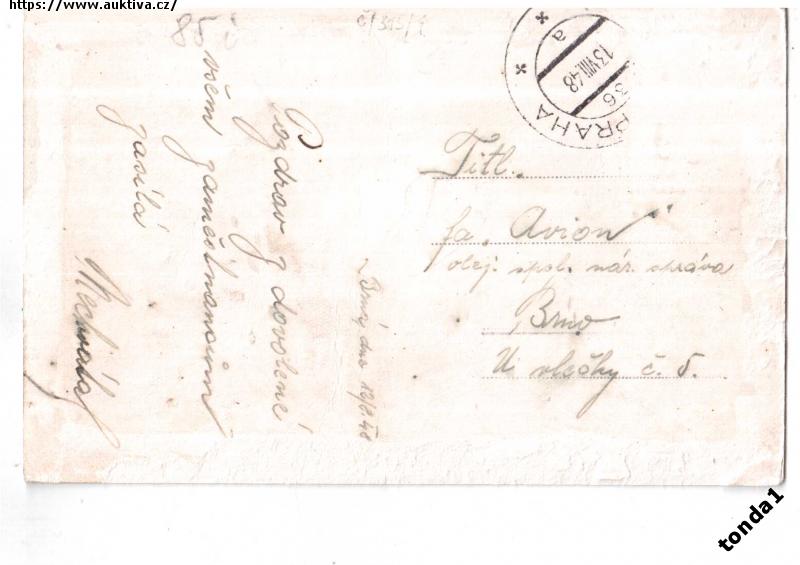 https://www.auktiva.cz/
85
PRAHA 36
13.VIII.48
a
Pozdrav z dovolené
všem zaměstnancům
zasílá
dne 12/8 48
Titl.
fa. "Avion"
olej. spol. nár. správa
Brno
U vlečky č. 5.
tonda1